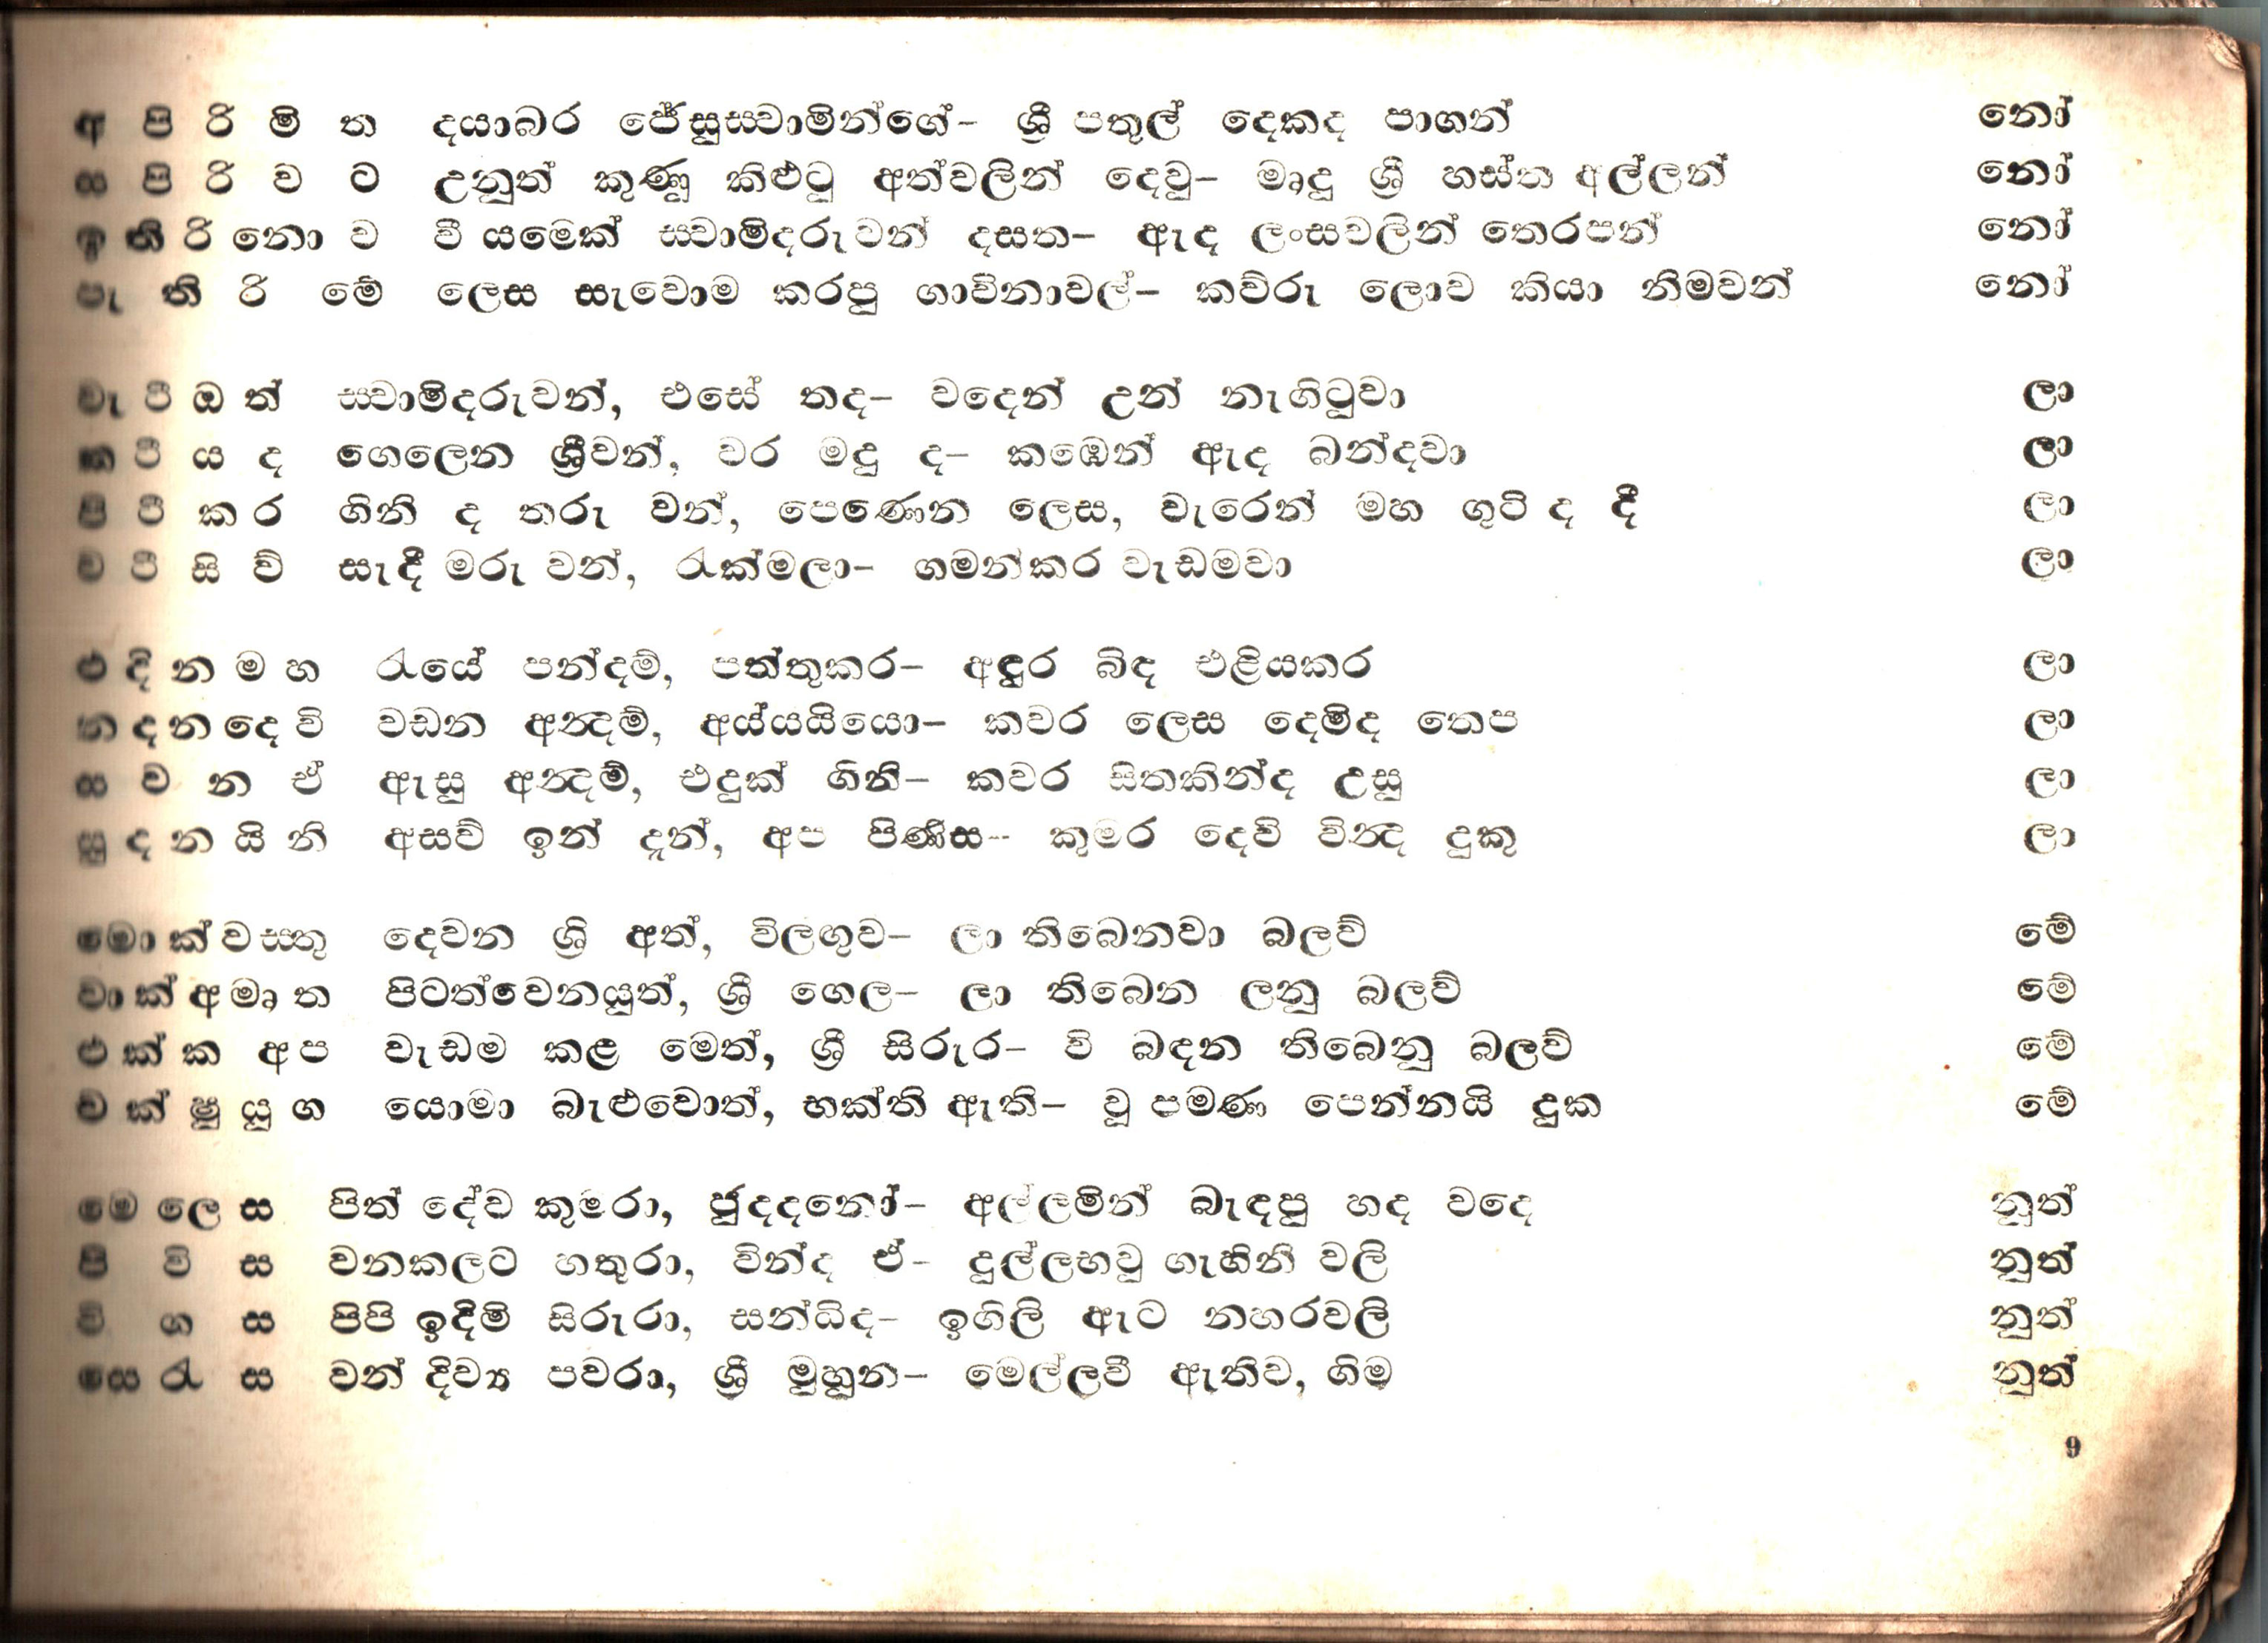 අ පි රි මි ත දයාබර ජේසුස්වාමින්ගේ- ශ්‍රී පතුල් දෙකද පාගන් නෝ
ස පි රි ව ට උනුත් කුණු කිළුටු අත්වලින් දෙවු- මෘදු ශ්‍රී හස්ත අල්ලන් නෝ
ඉ තිරි නො ව වී යමෙක් ස්වාමිදරුවන් දසත- ඇද ලංසවලින් තෙරපන් නෝ
පැ ති රි මේ ලෙස සැවොම කරපු ගාවිනාවල්- කව්රු ලොව කියා නිමවන් නෝ
වැ ටී ඔ ත් ස්වාමිදරුවන්, එසේ තද- වදෙන් උන් නැගිටුවා ලා
ටී ය ද ගෙලෙන ශ්‍රීවන්, වර මදු ද- කඹෙන් ඇද බන්දවා ලා
පි ටී ක ර ගිනි ද තරු වන්, පෙණෙන ලෙස, වැරෙන් මහ ගුටි ද දී ලා
ව ටී සි ව් සැදී මරු වන්, රැක්මලා- ගමන්කර වැඩමවා ලා
එ දි න ම හ රැයේ පන්දම්, පත්තුකර- අඳුර බිඳ එළියකර ලා
න ද න දෙ වි වඩන අන්‍දම්, අය්යයියො- කවර ලෙස දෙම්ද තෙප ලා
ස ව න ඒ ඇසු අන්‍දම්, එදුක් ගිනි- කවර සිතකින්ද උසු ලා
සු ද න යි නි අසව් ඉන් දූන්, අප පිණිස- කුමර දෙවි වින්‍ද දුකු ලා
මො ක් ව ස්තු දෙවන ශ්‍රි අත්, විලඟුව- ලා තිබෙනවා බලව් මේ
වා ක් අ මෘ ත පිටත්වෙනයුත්, ශ්‍රී ගෙල- ලා තිබෙන ලනු බලව් මේ
එ ක් ක අ ප වැඩම කළ මෙත්, ශ්‍රී සිරුර- වි බඳන තිබෙනු බලව් මේ
ච ක් ෂු යු ග යොමා බැළුවොත්, භක්ති ඇති- වූ පමණ පෙන්නයි දුක මේ
මෙ ලෙ ස පිත් දේව කුමරා, ජුදදනෝ- අල්ලමින් බැඳපු හද වදෙ නුත්
පි වි ස වනකලට හතුරා, වින්ද ඒ- දුල්ලභවු ගැහිනි වලි නුත්
වි ග ස පිපි ඉදිමි සිරුරා, සන්ධිද- ඉගිලි ඇට නහරවලි නුත්
සෙ රැ ස වන් දිව්‍ය පවරා, ශ්‍රී මුහුන- මෙල්ලවී ඇතිව, ගිම නුත්
9